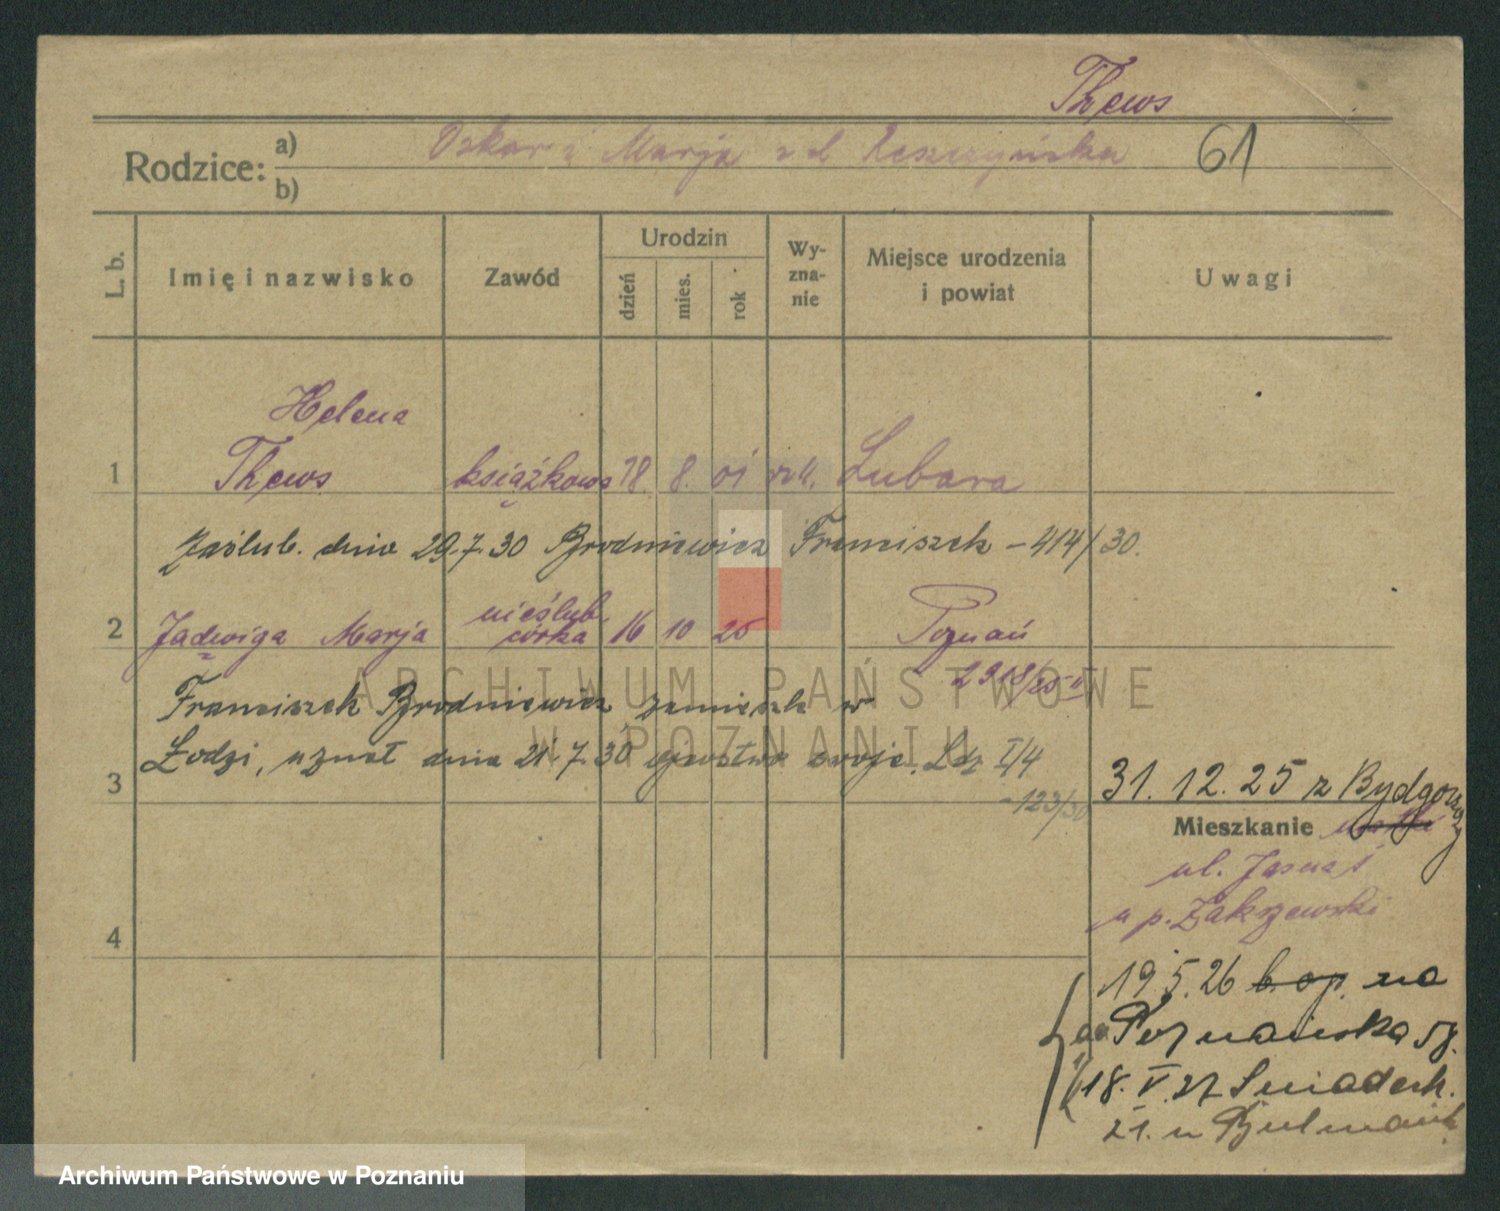 Thews
Rodzice: a) Oskar i Marja z d. Leszczyńska 61
b)
L. b. Imię i nazwisko Zawód Urodzin dzień mies. rok Wy-zna-nie Miejsce urodzenia i powiat Uwagi
Helena
1 Thews książkowa 18 8. 01 rz k. Lubara
Zaślub. dnia 29.7.30 Brodniewicz Franciszek - 414/30.
nieślub.
2 Jadwiga Marja córka 16 10 25 Poznań
2918/25 II
Franciszek Brodniewicz zamieszk w
Łodzi, uznał dnia 21.7.30 ojcostwo swoje. L.dz I/4
3 - 123/30
31. 12. 25 z Bydgoszczy
Mieszkanie
ul. Jasna 1
u p. Zakrzewski
4
19.5.26 b. op. na
Poznańska 59.
18. V. 27 Śniadeck.
21. u Bulmank
ARCHIWUM PAŃSTWOWE
W POZNANIU
Archiwum Państwowe w Poznaniu